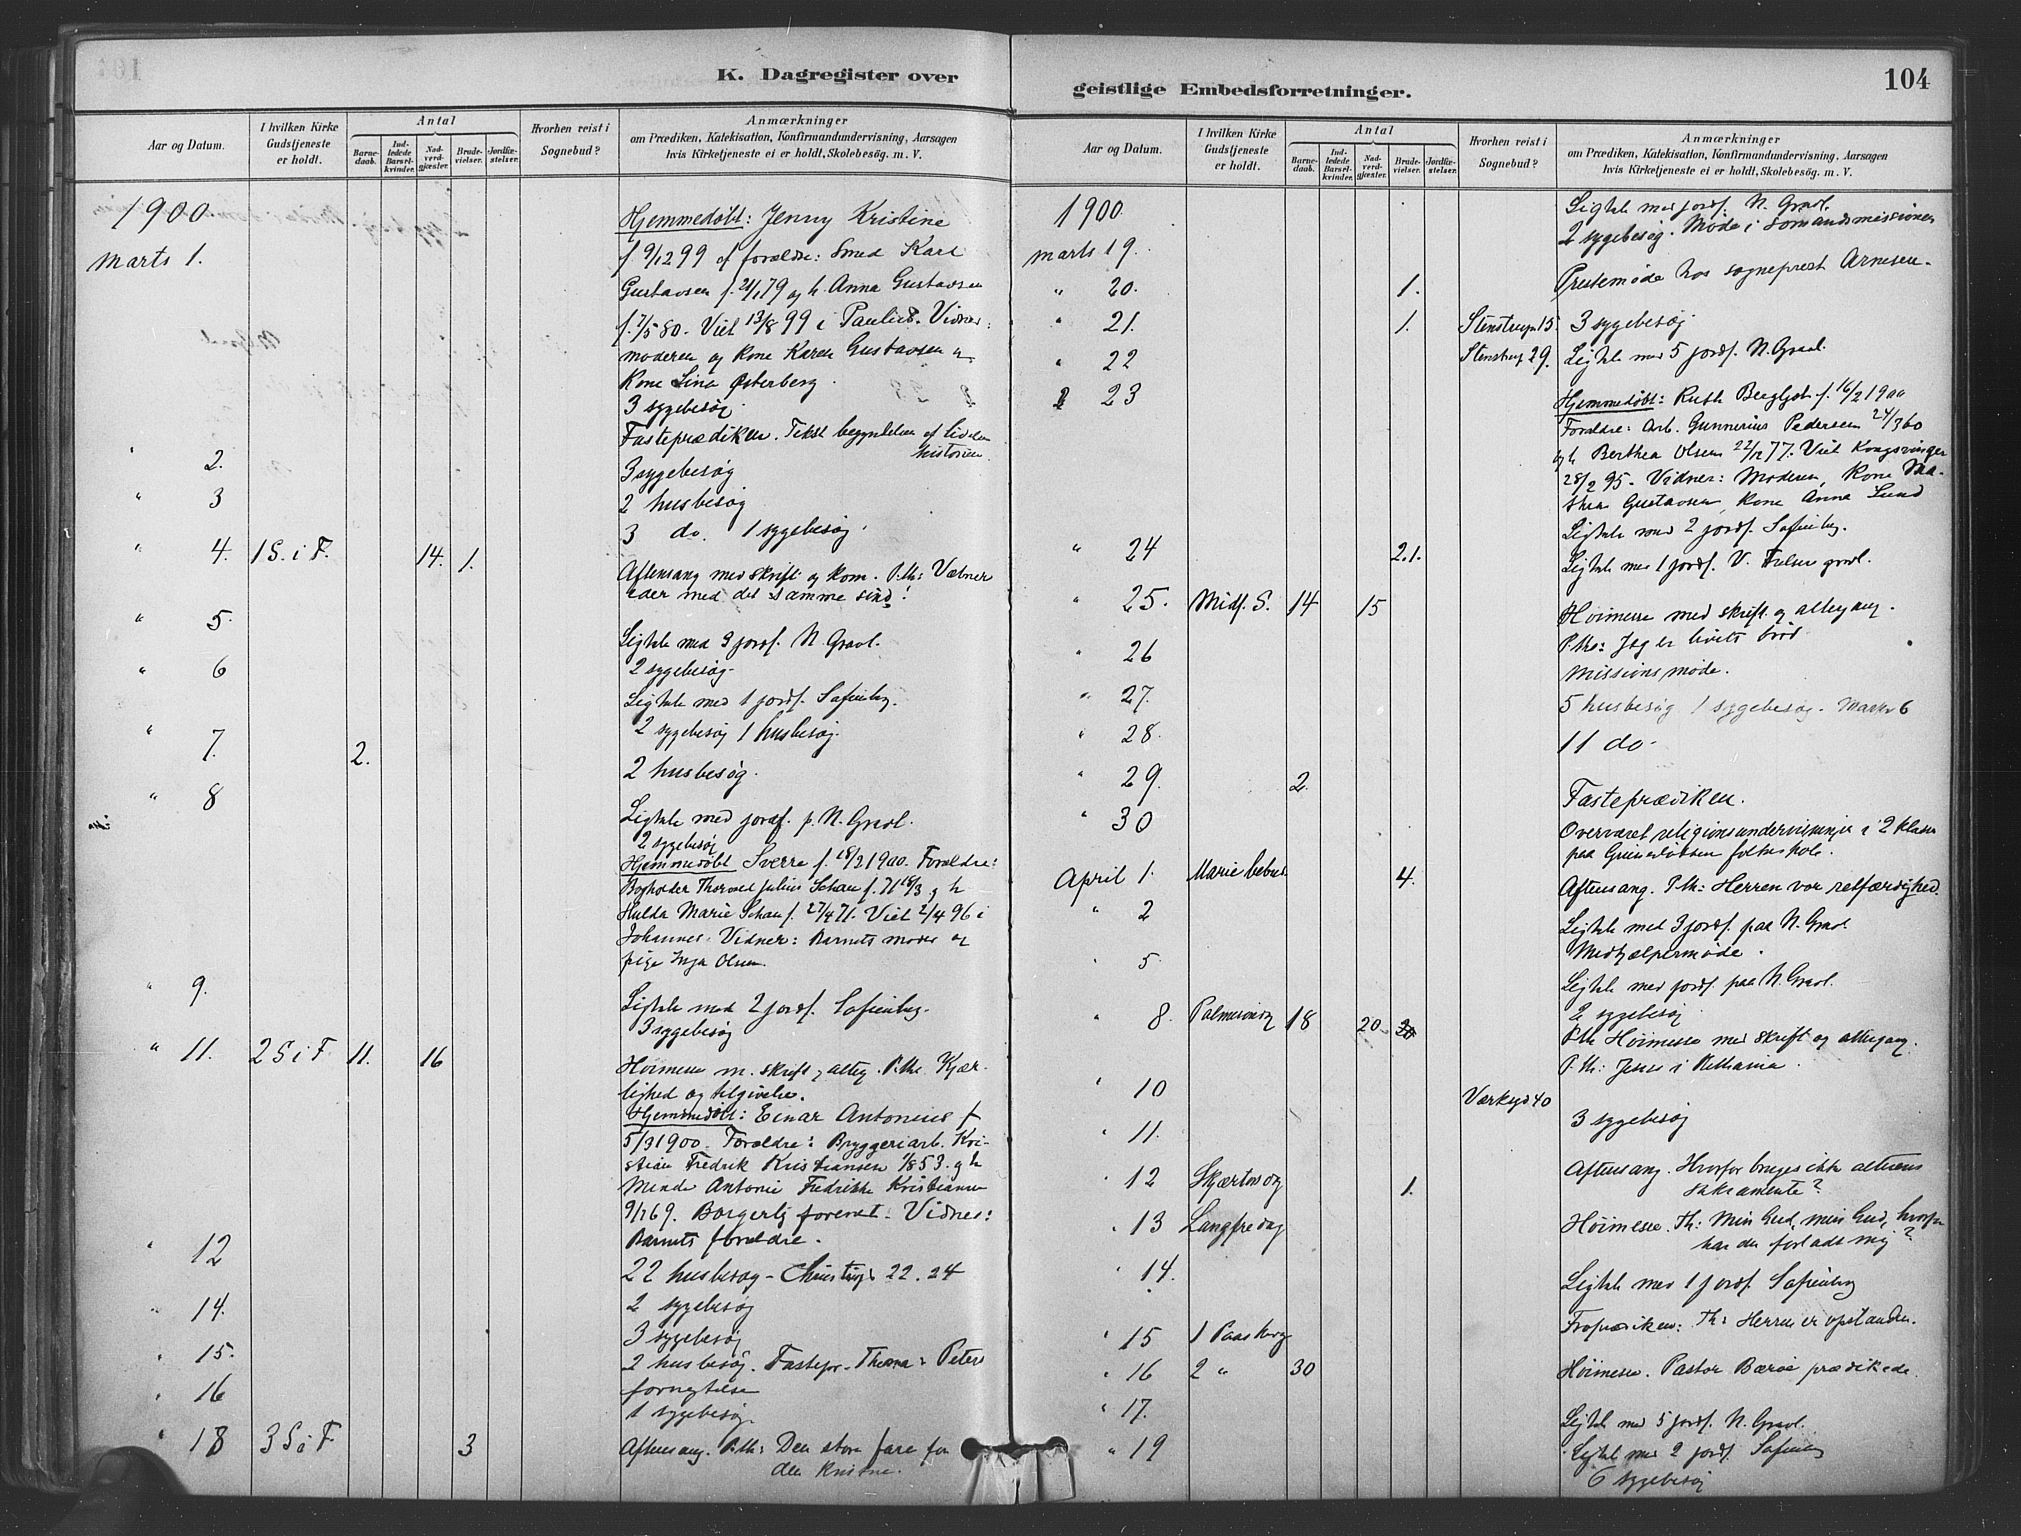 K. Dagregister over
Aar og Datum.
I hvilken Kirke Gudstjeneste er holdt.
Antal
Barnedaab.
Indledede Barselkvinder.
Nadverdgjæster.
Brudevielser.
Jordfæstelser.
Hvorhen reist i Sognebud?
Anmærkninger
om Prædiken, Katekisation, Konfirmandundervisning, Aarsagen
hvis Kirketjeneste ei er holdt, Skolebesøg. m. V.
1900
Marts 1.
Hjemmedøbt: Jenny Kristine
f 9/12 99 af forældre: Smed Karl
Gustavsen f. 21/1 79 og h. Anna Gustavsen
f. 7/5 80. Viet 13/8 99 i Paulus. Vidner:
moderen og Kone Karen Gustavsen og
Kone Lina Østerberg.
3 sygebesøg
Fasteprædiken. Tekst begyndelsen af lidelses
historien
" 2. 3 sygebesøg
" 3 2 husbesøg
3 do. 1 sygebesøg.
" 4. 1 S. i F. 14. 1. Aftensang med skrift. og kom. P.th: Væbner
eder med det samme sind!
" 5. Ligtale med 3 jordf. N. Gravl.
2 sygebesøg
" 6 Ligtale med 1 jordf. Sofienbg.
2 sygebesøg 1 husbesøg.
" 7. 2. 2 husbesøg.
" 8 Ligtale med jordf. p. N. Gravl.
2 sygebesøg
Hjemmedøbt Sverre f. 18/2 1900. Forældre:
Bogholder Thorvald Julius Schau f. 71 16/3 g h
Hulda Marie Schau f. 27/4 71. Viet 2/4 96 i
Johannes. Vidner: Barnets moder og
pige Inga Olsen.
" 9. Ligtale med 2 jordf. Sofienbg.
3 sygebesøg
" 11. 2 S i F 11. 16 Høimesse m. skrift. og alterg. P.th. Kjær-
lighed og tilgivelse.
Hjemmedøbt: Einar Antonius f
5/3 1900. Forældre: Bryggeriarb. Kri-
stian Fredrik Kristiansen 1/8 53. g h
Antonie Fredrikke Kristiansen
9/12 69. Borgerlig forenet. Vidner:
Barnets forældre.
" 12 22 husbesøg - 22. 24
" 14. 2 sygebesøg
3 sygebesøg
" 15. 2 husbesøg. Fastepr. Thema: Peters
" 16 fornegtelse
1 sygebesøg.
" 18 3 S i F 3 Aftensang. P.th: Den store fare for
den kristne.
geistlige Embedsforretninger.
104
Aar og Datum.
I hvilken Kirke Gudstjeneste er holdt.
Antal
Barnedaab.
Indledede Barselkvinder.
Nadverdgjæster.
Brudevielser.
Jordfæstelser.
Hvorhen reist i Sognebud?
Anmærkninger
om Prædiken, Katekisation, Konfirmandundervisning, Aarsagen
hvis Kirketjeneste ei er holdt, Skolebesøg. m. V.
1900
Ligtale med jordf. N. Gravl.
Marts 19. 2 sygebesøg. Møde i Sømandsmissionen
" 20. 1. Prestemøde hos sogneprest Arnesen.
" 21. 1. 15. 3 sygebesøg
" 22 29. Ligtale med 5 jordf. N. Gravl.
" 23 Hjemmedøbt: Ruth Bergljot f. 16/2 1900
Forældre: Arb. Gunnerius Pedersen 24/3 60
og h Berthea Olsen 22/12 77. Viet Kongsvinger
28/2 95. Vidner: Moderen, Kone Ma-
thea Gustavsen, Kone Anna Lund
Ligtale med 2 jordf. Sofienbg.
" 24 2.1. Ligtale med 1 jordf. V. Frelsers gravl.
" 25. Midf. S. 14 15 Høimesse med skrift. og altergang.
P.tho: Jeg er livets brød
" 26 Missionsmøde.
" 27. 5 husbesøg 1 sygebesøg. Markv 6
" 28. 11 do.
" 29. 2. Fasteprædiken.
" 30 Overværet religionsundervisningen i 2 klasser
paa Grünerløkken folkeskole.
April 1. Marie bebud. 4. Aftensang. P.th: Herren vor retfærdighed.
" 2 Ligtale med 3 jordf. paa N. Gravl.
Medhjælpermøde.
" 5 Ligtale med jordf. paa N. Gravl.
2 sygebesøg
" 8. Palmesøndag 18 20 P.th Høimesse med skrift og altergang.
P.th: Jesus i Bethania.
" 10 40 3 sygebesøg
" 11.
" 12 Skjærtorsdag 1. Aftensang. Hvorfor bruges ikke alterens
sakramente?
" 13 Langfredag Høimesse. Th: Min Gud, min Gud, hvorfor
har du forladt mig?
" 14. Ligtale med 1 jordf. Sofienbg
" 15 1 Paaskedag Froprædiken: Th: Herren er opstanden.
" 16 2 " 30 Høimesse. Pastor Bærøe prædikede.
" 17. Ligtale med 5 jordf. N. Gravl.
" 19 Ligtale med 2 jordf. Sofienbg
6 sygebesøg